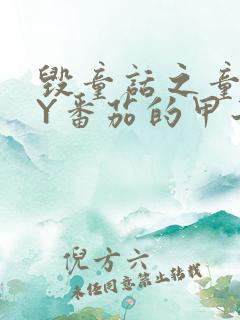 毁童话之童
Y番茄的甲
倪方六
未经同意禁止转载